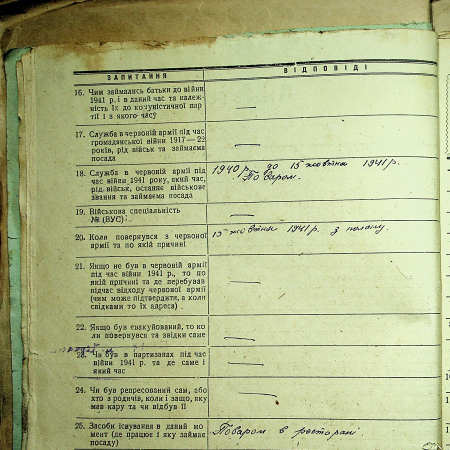 ЗАПИТАННЯ
ВІДПОВІДІ
16. Чим займались батьки до війни
1941 р. і в даний час та належ-
ність їх до комуністичної пар-
тії і з якого часу
—
17. Служба в червоній армії під час
громадянської війни 1917—22
років, рід військ та займаєма
посада
—
18. Служба в червоній армії під
час війни 1941 року, який час,
рід військ, останнє військове
звання та займаєма посада
1940 р. до 15 жовтня 1941 р.
Поваром.
19. Військова спеціальність
№ (ВУС)
—
20. Коли повернувся з червоної
армії та по якій причині
15 жовтня 1941 р. з полону.
21. Якщо не був в червоній армії
під час війни 1941 р., то по
якій причині та де перебував
підчас відходу червоної армії
(чим може підтвердити, а коли
свідками то їх адреса)
—
22. Якщо був евакуйований, то ко-
ли повернувся та звідки саме
—
23. Чи був в партизанах під час
війни 1941 р. та де саме і
який час
—
24. Чи був репресований сам, або
хто з родичів, коли і защо, яку
мав кару та чи відбув її
—
25. Засоби існування в даний мо-
мент (де працює і яку займає
посаду)
Поваром в ресторані.